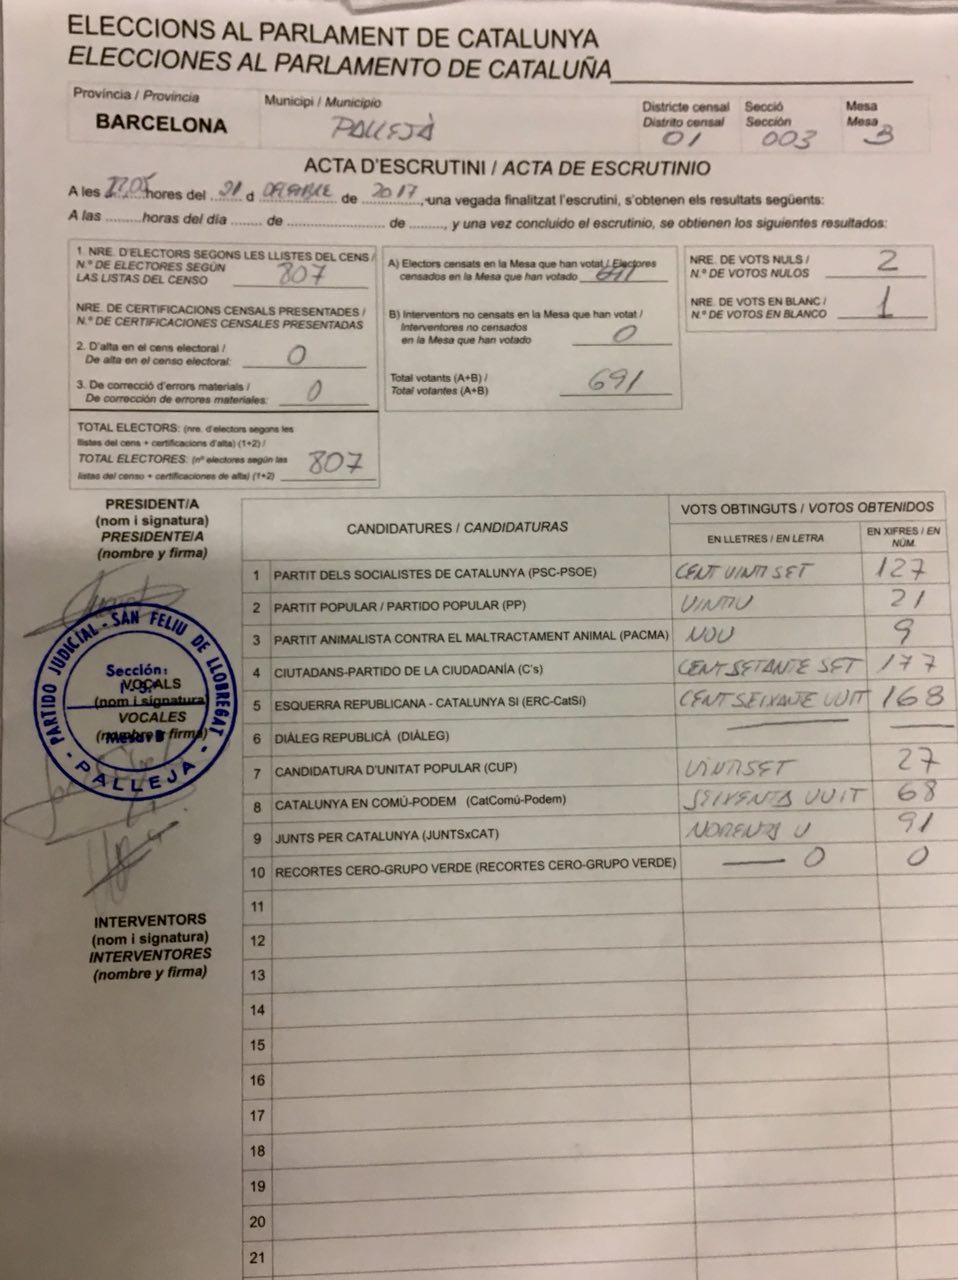 ELECCIONS AL PARLAMENT DE CATALUNYA
ELECCIONES AL PARLAMENTO DE CATALUÑA
Província / Provincia
BARCELONA
Municipi / Municipio
PALLEJÀ
Districte censal
Distrito censal
01
Secció
Sección
003
Mesa
Mesa B
ACTA D'ESCRUTINI / ACTA DE ESCRUTINIO
A les 22,05 hores del 21 d DESEMBRE de 2017, una vegada finalitzat l'escrutini, s'obtenen els resultats següents:
A las ......... horas del día ........ de ......................... de ........., y una vez concluido el escrutinio, se obtienen los siguientes resultados:
1. NRE. D'ELECTORS SEGONS LES LLISTES DEL CENS /
N.º DE ELECTORES SEGÚN
LAS LISTAS DEL CENSO 807
NRE. DE CERTIFICACIONS CENSALS PRESENTADES /
N.º DE CERTIFICACIONES CENSALES PRESENTADAS
2. D'alta en el cens electoral /
De alta en el censo electoral: 0
3. De correcció d'errors materials /
De corrección de errores materiales: 0
TOTAL ELECTORS: (nre. d'electors segons les
llistes del cens + certificacions d'alta) (1+2) /
TOTAL ELECTORES: (nº electores según las
listas del censo + certificaciones de alta) (1+2) 807
A) Electors censats en la Mesa que han votat / Electores
censados en la Mesa que han votado 691
B) Interventors no censats en la Mesa que han votat /
Interventores no censados
en la Mesa que han votado 0
Total votants (A+B) /
Total votantes (A+B) 691
NRE. DE VOTS NULS /
N.º DE VOTOS NULOS 2
NRE. DE VOTS EN BLANC /
N.º DE VOTOS EN BLANCO 1
PRESIDENT/A
(nom i signatura)
PRESIDENTE/A
(nombre y firma)
PARTIDO JUDICIAL - SAN FELIU DE LLOBREGAT - PALLEJA -
Sección:
VOCALS
(nom i signatura)
VOCALES
(nombre y firma)
INTERVENTORS
(nom i signatura)
INTERVENTORES
(nombre y firma)
CANDIDATURES / CANDIDATURAS
VOTS OBTINGUTS / VOTOS OBTENIDOS
EN LLETRES / EN LETRA
EN XIFRES / EN
NÚM.
1 PARTIT DELS SOCIALISTES DE CATALUNYA (PSC-PSOE) CENT VINTI SET 127
2 PARTIT POPULAR / PARTIDO POPULAR (PP) VINTIU 21
3 PARTIT ANIMALISTA CONTRA EL MALTRACTAMENT ANIMAL (PACMA) NOU 9
4 CIUTADANS-PARTIDO DE LA CIUDADANÍA (C's) CENT SETANTE SET 177
5 ESQUERRA REPUBLICANA - CATALUNYA SI (ERC-CatSí) CENT SEIXANTE VUIT 168
6 DIÀLEG REPUBLICÀ (DIÀLEG)
7 CANDIDATURA D'UNITAT POPULAR (CUP) VINTISET 27
8 CATALUNYA EN COMÚ-PODEM (CatComú-Podem) VUIT 68
9 JUNTS PER CATALUNYA (JUNTSxCAT) 91
10 RECORTES CERO-GRUPO VERDE (RECORTES CERO-GRUPO VERDE) 0 0
11
12
13
14
15
16
17
18
19
20
21